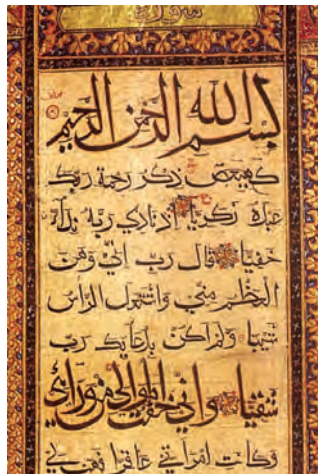 بسم الله الرحمن الرحيم
كهيعص ذكر رحمة ربك
عبده زكريا اذ نادى ربه ندآء
خفيا قال رب انّي وهن
العظم مني واشتعل الرأس
شيبا ولم اكن بدعآئك رب
شقيا واني خفت الموالي من ورآئي
وكانت امرأتي عاقرا فهب لي